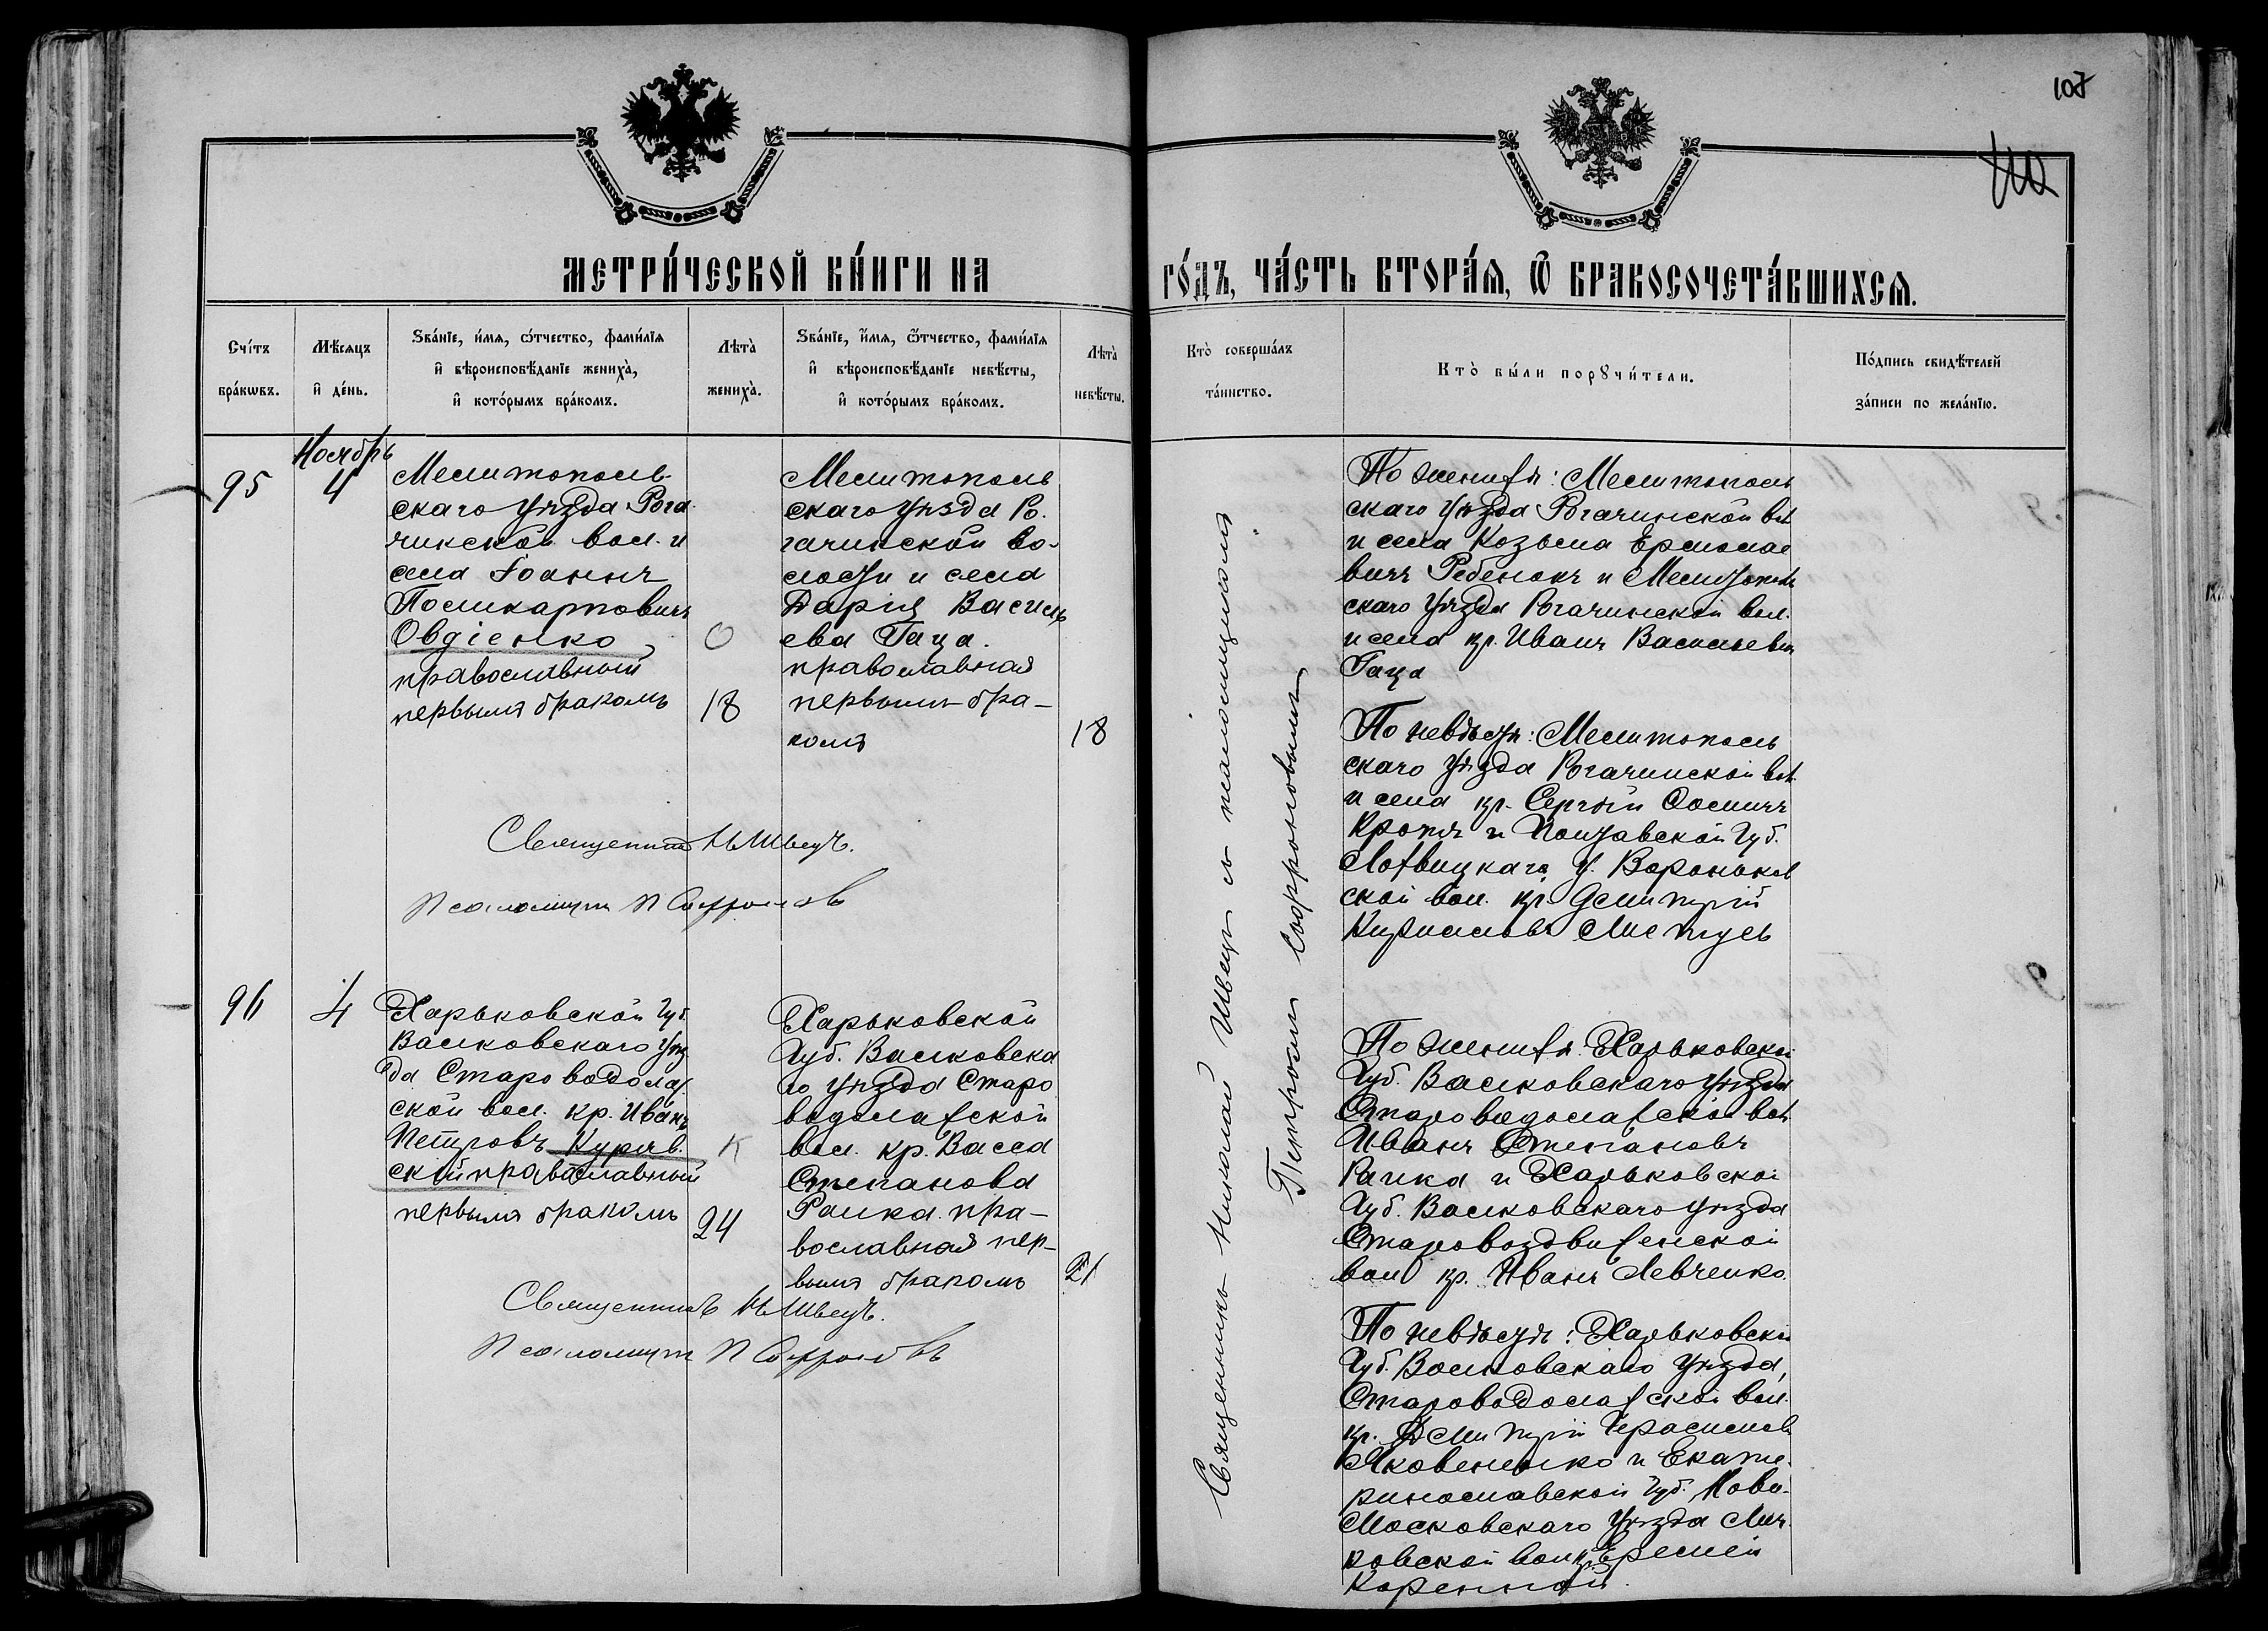 107
110
МЕТРИ́ЧЕСКОЙ КНИ́ГИ НА
ГО́ДЪ, ЧА́СТЬ ВТОРА́Я, Ѿ БРАКОСОЧЕТА́ВШИХСЯ.
Счі́тъ
бра́кѡвъ.
Мѣ́сяцъ
и҆ де́нь.
Ѕва́нїе, и́мя, ѻ́тчество, фами́лїя
и҆ вѣроисповѣ́данїе жениха̀,
и҆ кото́рымъ бра́комъ.
Лѣта̀
жениха̀.
Ѕва́нїе, и́мя, ѻ́тчество, фами́лїя
и҆ вѣроисповѣ́данїе невѣ́сты,
и҆ кото́рымъ бра́комъ.
Лѣта̀
невѣ́сты.
Кто̀ соверша́лъ
та́инство.
Кто̀ бы́ли порꙋчи́тели.
По́дпись свидѣ́телей
за́писи по жела́нїю.
Ноябрь
95
4
Мелитополь-
скаго Уѣзда Рога
чинской вол. и
села Іоаннъ
Поликарповичъ
Овдіенко
православный
первымъ бракомъ
О
18
Мелитополь
скаго Уѣзда Ро-
гачинской во-
лости и села
Дарія Василь
ева Гаца.
православная
первымъ бра-
комъ
18
Священникъ Н Швецъ.
Псаломщ П Софроновъ
Священникъ Николай Швецъ съ псаломщикомъ
Петромъ Софроновымъ
По женихѣ: Мелитополь
скаго Уѣзда Рогачинской вол
и села Козьма Ермолае
вичъ Ребенокъ и Мелитополь
скаго Уѣзда Рогачинской вол.
и села кр. Иванъ Васильевъ
Гаца
По невѣстѣ: Мелитополь
скаго Уѣзда Рогачинской вол.
и села кр. Сергѣй
и Полтавской Губ.
Лохвицкаго у. Вороньков
ской вол. кр. Дмитрій
Кирилловъ
96
4
Харьковской Губ.
Валковскаго Уѣз
да Староводолаж
ской вол. кр. Иванъ
Петровъ Куряв-
скій православный
первымъ бракомъ
К
24
Харьковской
Губ. Валковска
го Уѣзда Старо
водолажской
вол. кр. Васса
Степанова
Ралка пра-
вославная пер-
вымъ бракомъ
21
Священникъ Н Швецъ.
Псаломщ П Софроновъ
По женихѣ: Харьковской
Губ. Валковскаго Уѣзда
Староводолажской вол
Иванъ Степановъ
Ралка и Харьковской
Губ. Валковскаго Уѣзда
Старовоздвиженской
вол кр. Иванъ Левченко.
По невѣстѣ: Харьковской
Губ. Валковскаго Уѣзда,
Староводолажской вол.
кр. Дмитрій Герасимовъ
Яковененко и Екате-
ринославской Губ. Ново-
Московскаго Уѣзда Лич
ковской вол. кр. Еремѣй
Коренной.